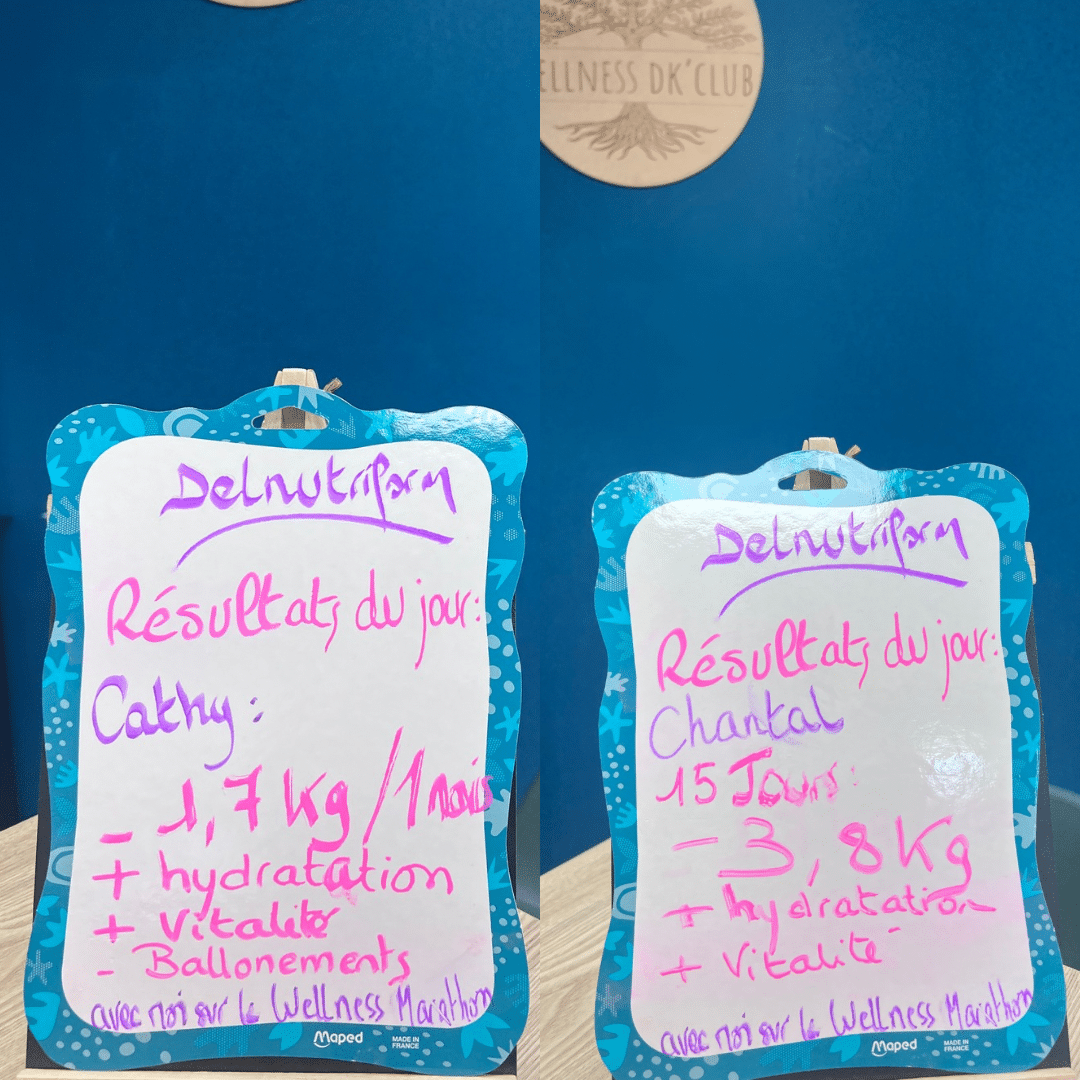 Delnutriform
Résultats du jour:
Cathy:
- 1,7 kg /1 mois
+ hydratation
+ Vitalité
- Ballonements
avec moi sur le Wellness Marathon
Maped
MADE IN
FRANCE
ELLNESS DK'CLUB
Delnutriform
Résultats du jour:
Chantal
15 Jours:
- 3,8 Kg
+ hydratation
+ Vitalité
avec moi sur le Wellness Marathon
Maped
MADE IN
FRANCE